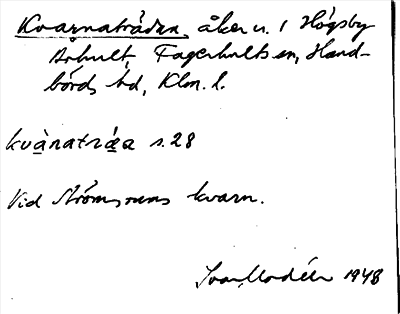 Kvarnaträdan, åker u. 1 Högsby
Århult, Fagerhults sn, Hand-
börds hd, Klm. l.
kvànatræa s. 28
Vid Strömsrums kvarn.
Ivar Modéer 1948